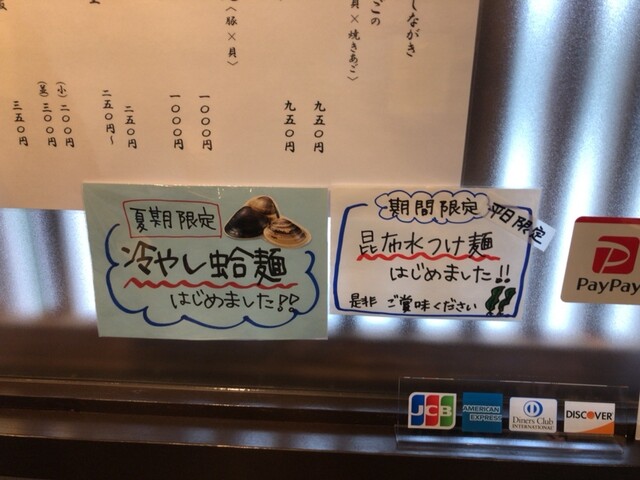 しながき
貝×焼きあご
ごの
〈豚×貝〉
九五〇円
九五〇円
一〇〇〇円
一〇〇〇円
二五〇円
二五〇円〜
(小)二〇〇円
(並)三〇〇円
三五〇円
夏期限定
冷やし蛤麺
はじめました!!
期間限定
平日限定
昆布水つけ麺
はじめました!!
是非 ご賞味ください
PayPay
JCB
AMERICAN EXPRESS
Diners Club
INTERNATIONAL
DISCOVER